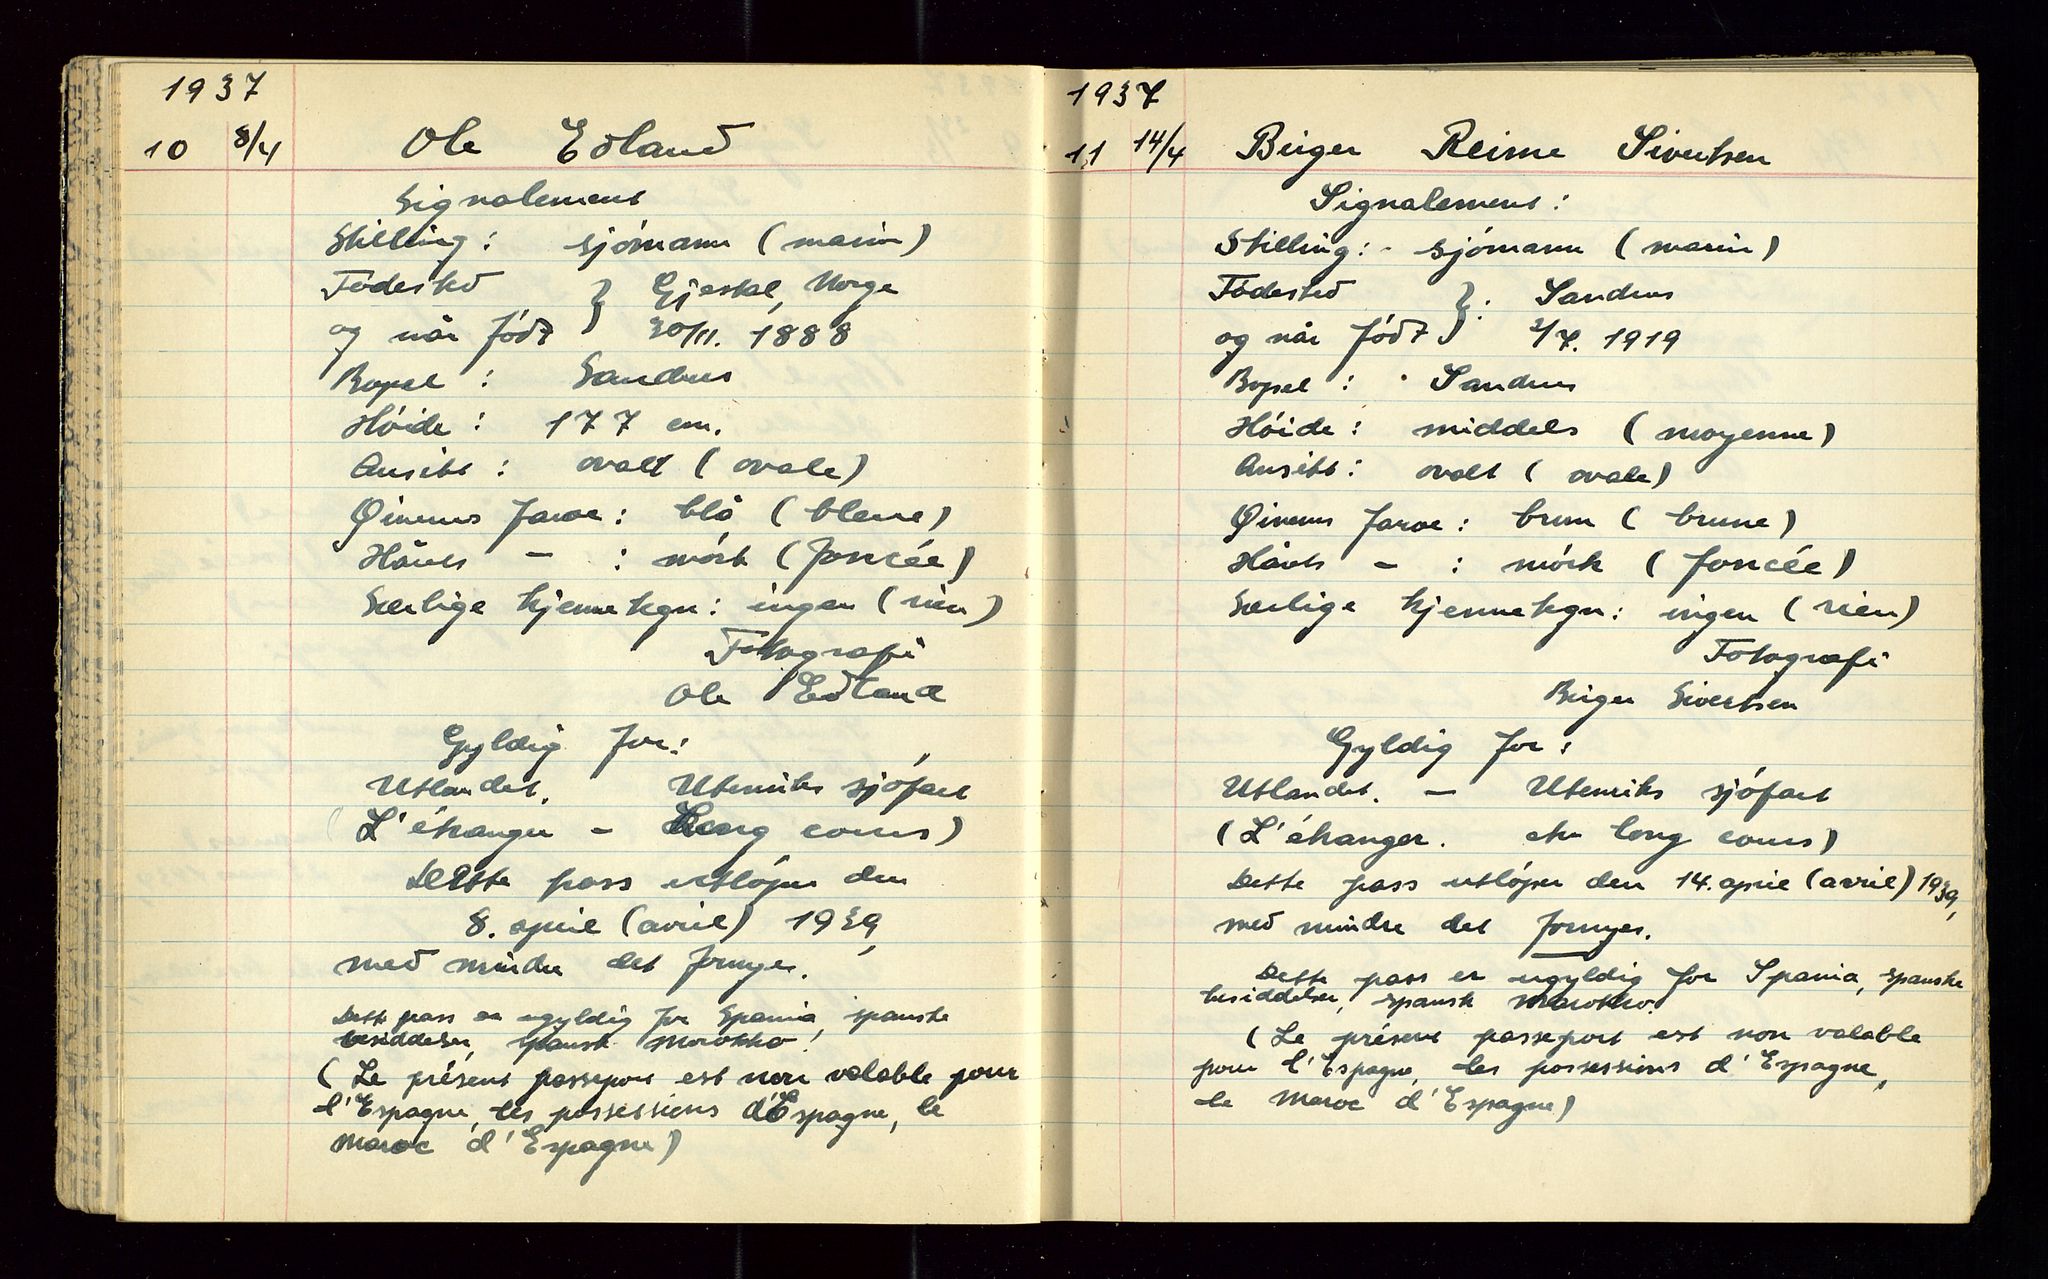 1937
10 8/4 Ole Edland
Signalement
Stilling: sjómann (marin)
Fødested
og når fódt } Gjestal, Norge
30/11. 1888
Bopel: Sandnes
Hóide: 177 cm.
Ansikt: ovalt (ovale)
Øinenes farve: blå (bleue)
Hårets – : mórk (foncée)
Særlige kjennetegn: ingen (rien)
Fotografi
Ole Edland
Gyldig for:
Utlandet. Utenriks sjófart
(L'étranger – long cours)
Dette pass utlóper den
8. april (avril) 1939,
med mindre det fornyes.
Dette pass er ugyldig for Spania, spanske
besiddelser, spansk Marokko.
(Le présent passeport est non valable pour
l'Espagne, les possessions d'Espagne, le
Maroc d'Espagne)
1937
11 14/4 Birger Reime Sivertsen
Signalement:
Stilling: - sjómann (marin)
Fødested
og når fódt }: Sandnes
2/7. 1919
Bopel: Sandnes
Hóide: middels (moyenne)
Ansikt: ovalt (ovale)
Øinenes farve: brun (brune)
Hårets – : mórk (foncée)
Særlige kjennetegn: ingen (rien)
Fotografi
Birger Sivertsen
Gyldig for:
Utlandet. – Utenriks sjófart
(L'étranger. long cours)
Dette pass utlóper den 14. april (avril) 1939,
med mindre det fornyes.
Dette pass er ugyldig for Spania, spanske
besiddelser, spansk Marokko.
(Le présent passeport est non valable
pour l'Espagne, les possessions d'Espagne,
le Maroc d'Espagne)